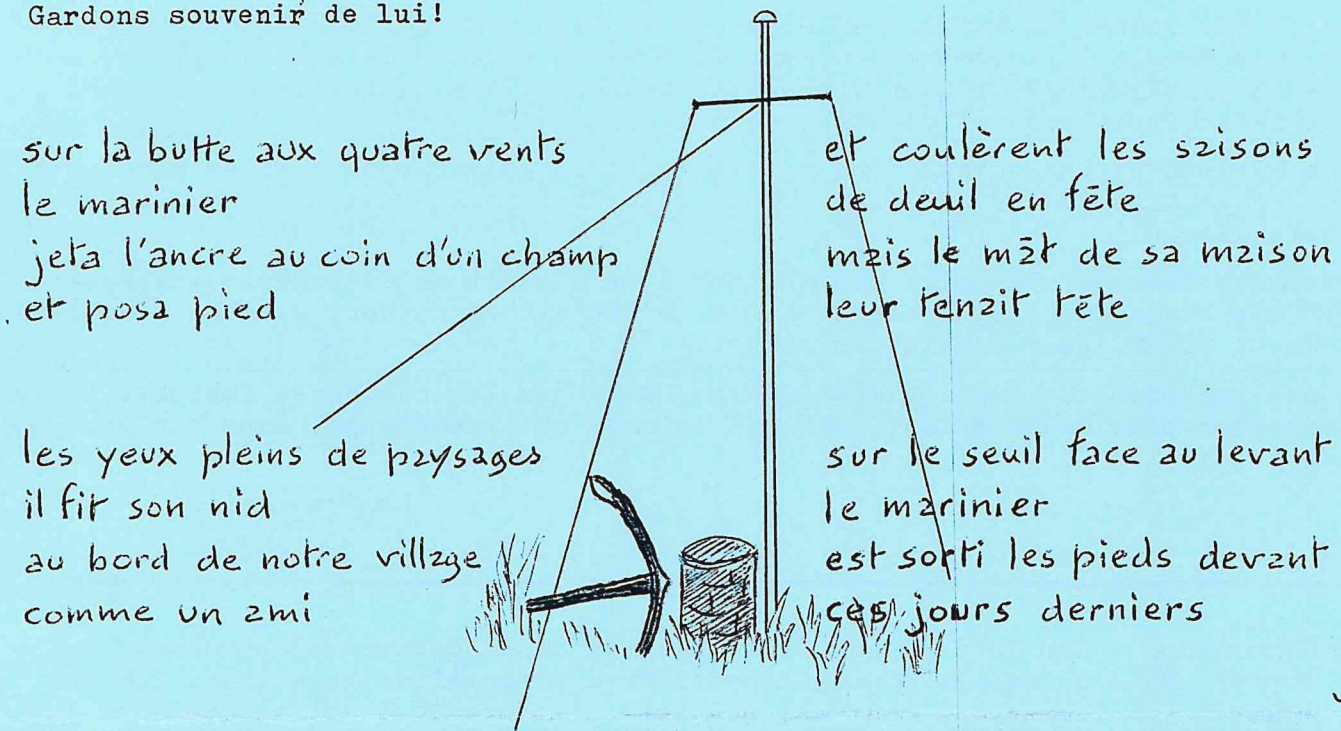 Gardons souvenir de lui!
sur la butte aux quatre vents
le marinier
jeta l'ancre au coin d'un champ
et posa pied
les yeux pleins de paysages
il fit son nid
au bord de notre village
comme un ami
et coulèrent les saisons
de deuil en fête
mais le mât de sa maison
leur tenait tête
sur le seuil face au levant
le marinier
est sorti les pieds devant
ces jours derniers